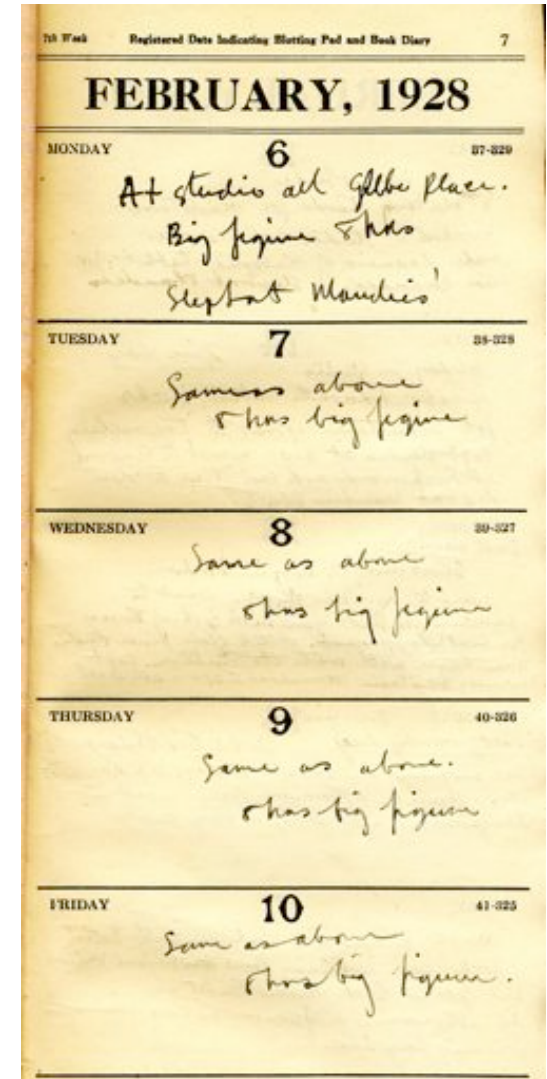 7th Week Registered Date Indicating Blotting Pad and Book Diary 7
FEBRUARY, 1928
MONDAY 6 37-329
At studio all Glebe Place.
Big figure &
Slept at Maudies'
TUESDAY 7 38-328
Same as above
& big figure
WEDNESDAY 8 39-327
Same as above
& big figure
THURSDAY 9 40-326
Same as above.
& big figure
FRIDAY 10 41-325
Same as above
& big figure.